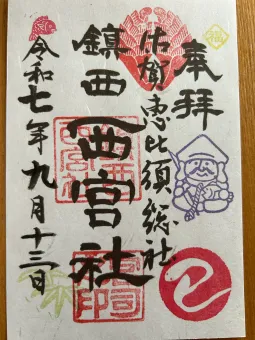 奉拝
佐賀恵比須総社
鎮西 西宮社
令和七年九月十三日